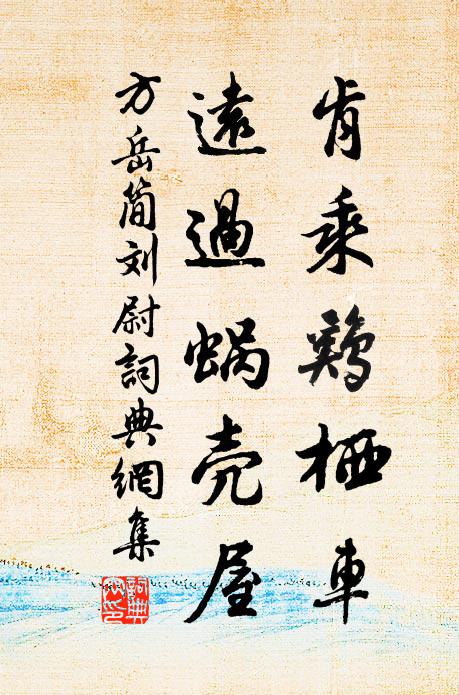 肯乘鷄栖車
遠過蝸壳屋
方岳简刘尉詞典網集